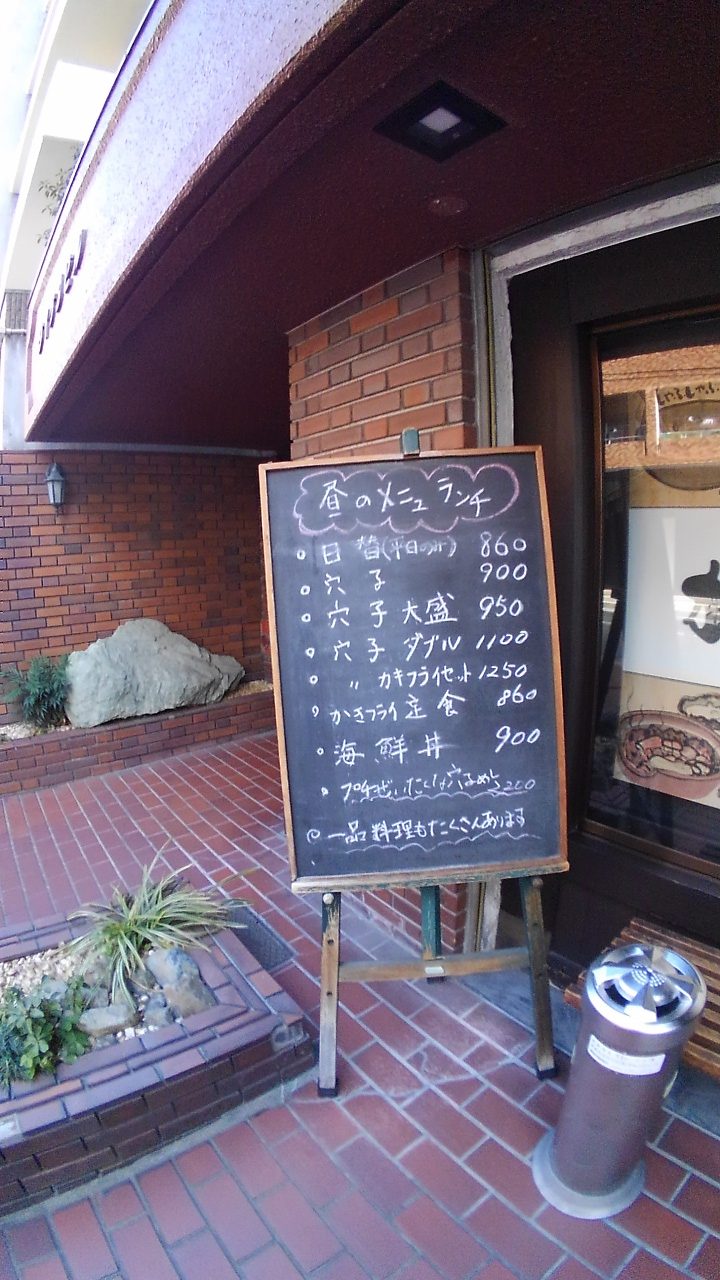 昼のメニュ ランチ
日替(平日のみ) 860
穴子 900
穴子大盛 950
穴子ダブル 1100
〃 カキフライセット 1250
かきフライ定食 860
海鮮丼 900
プチぜいたく 穴 200
一品料理もたくさんあります